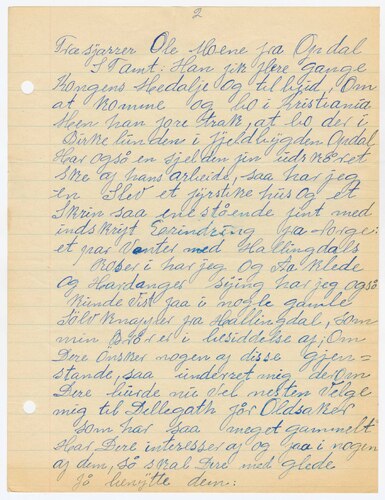 2
Træsjærrer Ole Moene fra Opdal
S Tamt: Han fik flere gange
Kongens Medalje og tilbud, Om
at komme og bo i Kristiania
Men han fore trak, at bo der i
Birke lunden i fjeldbygden Opdal
Har også en sjelden fin udskåret
Ske af hans arbeide, saa har jeg
en Slev et fyrstike hus og et
Skrin saa ene stående fint med
indskrift Erindring fra Norge:
et par Vanter med Hallingdals
Roser i har jeg og Aa klede
og Hardanger sying har jeg også
Kunde vist faa i nogle gamle
Sölv knapper fra Hallingdal, som
min Brörer i besiddelse af; Om
Dere önsker nogen af disse gjen=
stande, saa underret mig derom
Dere burde nu vel nesten Velge
mig til Dellegath för Oldsaker
som har saa meget gammelt
Har Dere interesse af og faa i nogen
af dem, så skal Dere med glede
få benytte dem: